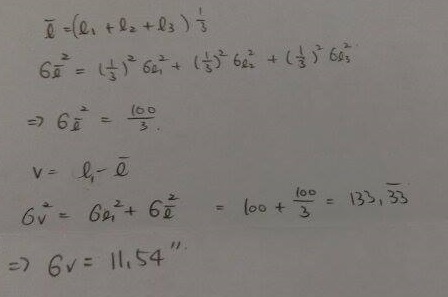 l̄ = (l₁ + l₂ + l₃) 1/3
6l̄² = (1/3)² 6l₁² + (1/3)² 6l₂² + (1/3)² 6l₃²
=> 6l̄² = 100/3.
v = l₁ - l̄
6v² = 6l₁² + 6l̄² = 100 + 100/3 = 133,3̅3̅
=> 6v = 11,54".